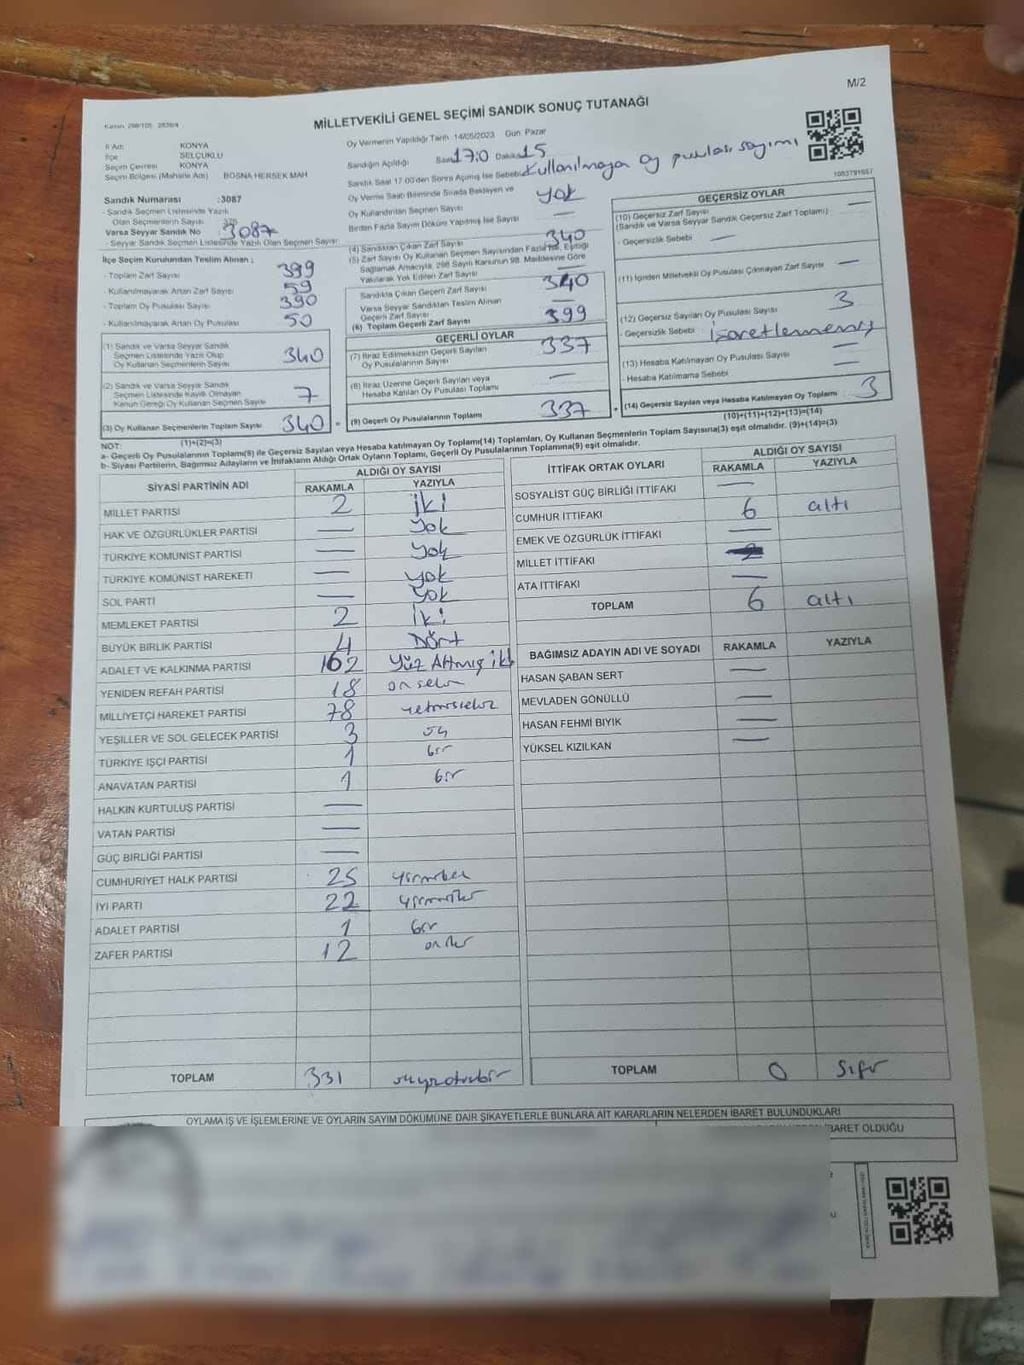 M/2
MİLLETVEKİLİ GENEL SEÇİMİ SANDIK SONUÇ TUTANAĞI
İl Adı KONYA
İlçe SELÇUKLU
Seçim Çevresi KONYA
Seçim Bölgesi (Mahalle Adı) BOSNA HERSEK MAH
Oy Vermenin Yapıldığı Tarih 14/05/2023 Gün Pazar
Sandığın Açıldığı Saat 17:0 Dakika 15
Sandık Saat 17:00'den Sonra Açılmış İse Sebebi Kullanılmayan Oy pusulası sayımı
Oy Verme Saati Bitiminde Sırada Bekleyen ve
Oy Kullandırılan Seçmen Sayısı yok
Birden Fazla Sayım Döküm Yapılmış İse Sayısı —
1083791657
Sandık Numarası :3087
- Sandık Seçmen Listesinde Yazılı
Olan Seçmenlerin Sayısı 375
Varsa Seyyar Sandık No 3087
- Seyyar Sandık Seçmen Listesinde Yazılı Olan Seçmen Sayısı
İlçe Seçim Kurulundan Teslim Alınan ;
- Toplam Zarf Sayısı 399
- Kullanılmayarak Artan Zarf Sayısı 59
- Toplam Oy Pusulası Sayısı 390
- Kullanılmayarak Artan Oy Pusulası 50
(1) Sandık ve Varsa Seyyar Sandık
Seçmen Listesinde Yazılı Olup
Oy Kullanan Seçmenlerin Sayısı 340
(2) Sandık ve Varsa Seyyar Sandık
Seçmen Listesinde Kayıtlı Olmayan
Kanun Gereği Oy Kullanan Seçmen Sayısı 7
(3) Oy Kullanan Seçmenlerin Toplam Sayısı 340
(1)+(2)=(3)
(4) Sandıktan Çıkan Zarf Sayısı 340
(5) Zarf Sayısı Oy Kullanan Seçmen Sayısından Fazla İse, Eşitliği
Sağlamak Amacıyla, 298 Sayılı Kanunun 98. Maddesine Göre
Yakılarak Yok Edilen Zarf Sayısı —
Sandıkta Çıkan Geçerli Zarf Sayısı 340
Varsa Seyyar Sandıktan Teslim Alınan
Geçerli Zarf Sayısı —
(6) Toplam Geçerli Zarf Sayısı 399
GEÇERLİ OYLAR
(7) İtiraz Edilmeksizin Geçerli Sayılan
Oy Pusulalarının Sayısı 337
(8) İtiraz Üzerine Geçerli Sayılan veya
Hesaba Katılan Oy Pusulası Toplamı —
(9) Geçerli Oy Pusulalarının Toplamı 337
GEÇERSİZ OYLAR
(10) Geçersiz Zarf Sayısı —
(Sandık ve Varsa Seyyar Sandık Geçersiz Zarf Toplamı)
- Geçersizlik Sebebi —
(11) İçinden Milletvekili Oy Pusulası Çıkmayan Zarf Sayısı —
(12) Geçersiz Sayılan Oy Pusulası Sayısı 3
- Geçersizlik Sebebi işaretlenmemiş
(13) Hesaba Katılmayan Oy Pusulası Sayısı —
- Hesaba Katılmama Sebebi —
(14) Geçersiz Sayılan veya Hesaba Katılmayan Oy Toplamı 3
(10)+(11)+(12)+(13)=(14)
NOT:
a- Geçerli Oy Pusulalarının Toplamı(9) ile Geçersiz Sayılan veya Hesaba Katılmayan Oy Toplamı(14) Toplamları, Oy Kullanan Seçmenlerin Toplam Sayısına(3) eşit olmalıdır. (9)+(14)=(3)
b- Siyasi Partilerin, Bağımsız Adayların ve İttifakların Aldığı Ortak Oyların Toplamı, Geçerli Oy Pusulalarının Toplamına(9) eşit olmalıdır.
SİYASİ PARTİNİN ADI ALDIĞI OY SAYISI
RAKAMLA YAZIYLA
MİLLET PARTİSİ 2 iki
HAK VE ÖZGÜRLÜKLER PARTİSİ — yok
TÜRKİYE KOMÜNİST PARTİSİ — yok
TÜRKİYE KOMÜNİST HAREKETİ — yok
SOL PARTİ — yok
MEMLEKET PARTİSİ 2 iki
BÜYÜK BİRLİK PARTİSİ 4 Dört
ADALET VE KALKINMA PARTİSİ 162 Yüz Altmış iki
YENİDEN REFAH PARTİSİ 18 onsekiz
MİLLİYETÇİ HAREKET PARTİSİ 78 yetmişsekiz
YEŞİLLER VE SOL GELECEK PARTİSİ 3 üç
TÜRKİYE İŞÇİ PARTİSİ 1 bir
ANAVATAN PARTİSİ 1 bir
HALKIN KURTULUŞ PARTİSİ —
VATAN PARTİSİ —
GÜÇ BİRLİĞİ PARTİSİ —
CUMHURİYET HALK PARTİSİ 25 yirmibeş
İYİ PARTİ 22 yirmiiki
ADALET PARTİSİ 1 bir
ZAFER PARTİSİ 12 oniki
TOPLAM 331 üçyüzotuzbir
İTTİFAK ORTAK OYLARI ALDIĞI OY SAYISI
RAKAMLA YAZIYLA
SOSYALİST GÜÇ BİRLİĞİ İTTİFAKI —
CUMHUR İTTİFAKI 6 altı
EMEK VE ÖZGÜRLÜK İTTİFAKI —
MİLLET İTTİFAKI
ATA İTTİFAKI —
TOPLAM 6 altı
BAĞIMSIZ ADAYIN ADI VE SOYADI RAKAMLA YAZIYLA
HASAN ŞABAN SERT —
MEVLADEN GÖNÜLLÜ —
HASAN FEHMİ BIYIK —
YÜKSEL KIZILKAN —
TOPLAM 0 sıfır
OYLAMA İŞ VE İŞLEMLERİNE VE OYLARIN SAYIM DÖKÜMÜNE DAİR ŞİKAYETLERLE BUNLARA AİT KARARLARIN NELERDEN İBARET BULUNDUKLARI
BARET OLDUĞU